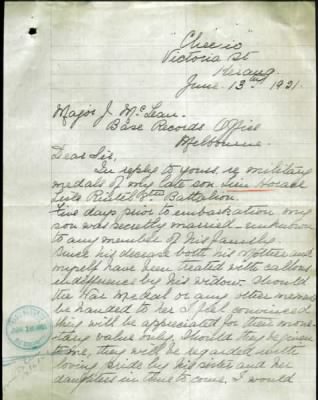 Victoria St
Kerang.
June 13th 1921.
Major J. McLean.
Base Records Office
Melbourne.
Dear Sir,
In reply to yours, re military
medals of my late son Lieu Horace
Battalion.
Five days prior to embarkation my
son was secretly married - unknown
to any member of his family.
Since his decease both his Mother and
myself have been treated with callous
indifference by his widow. Should
the War Medal or any other memento
be handed to her I feel convinced
they will be appreciated for their mone-
tary value only. Should they be given
to me, they will be regarded with
loving pride by his sister and her
daughters in time to come. I would